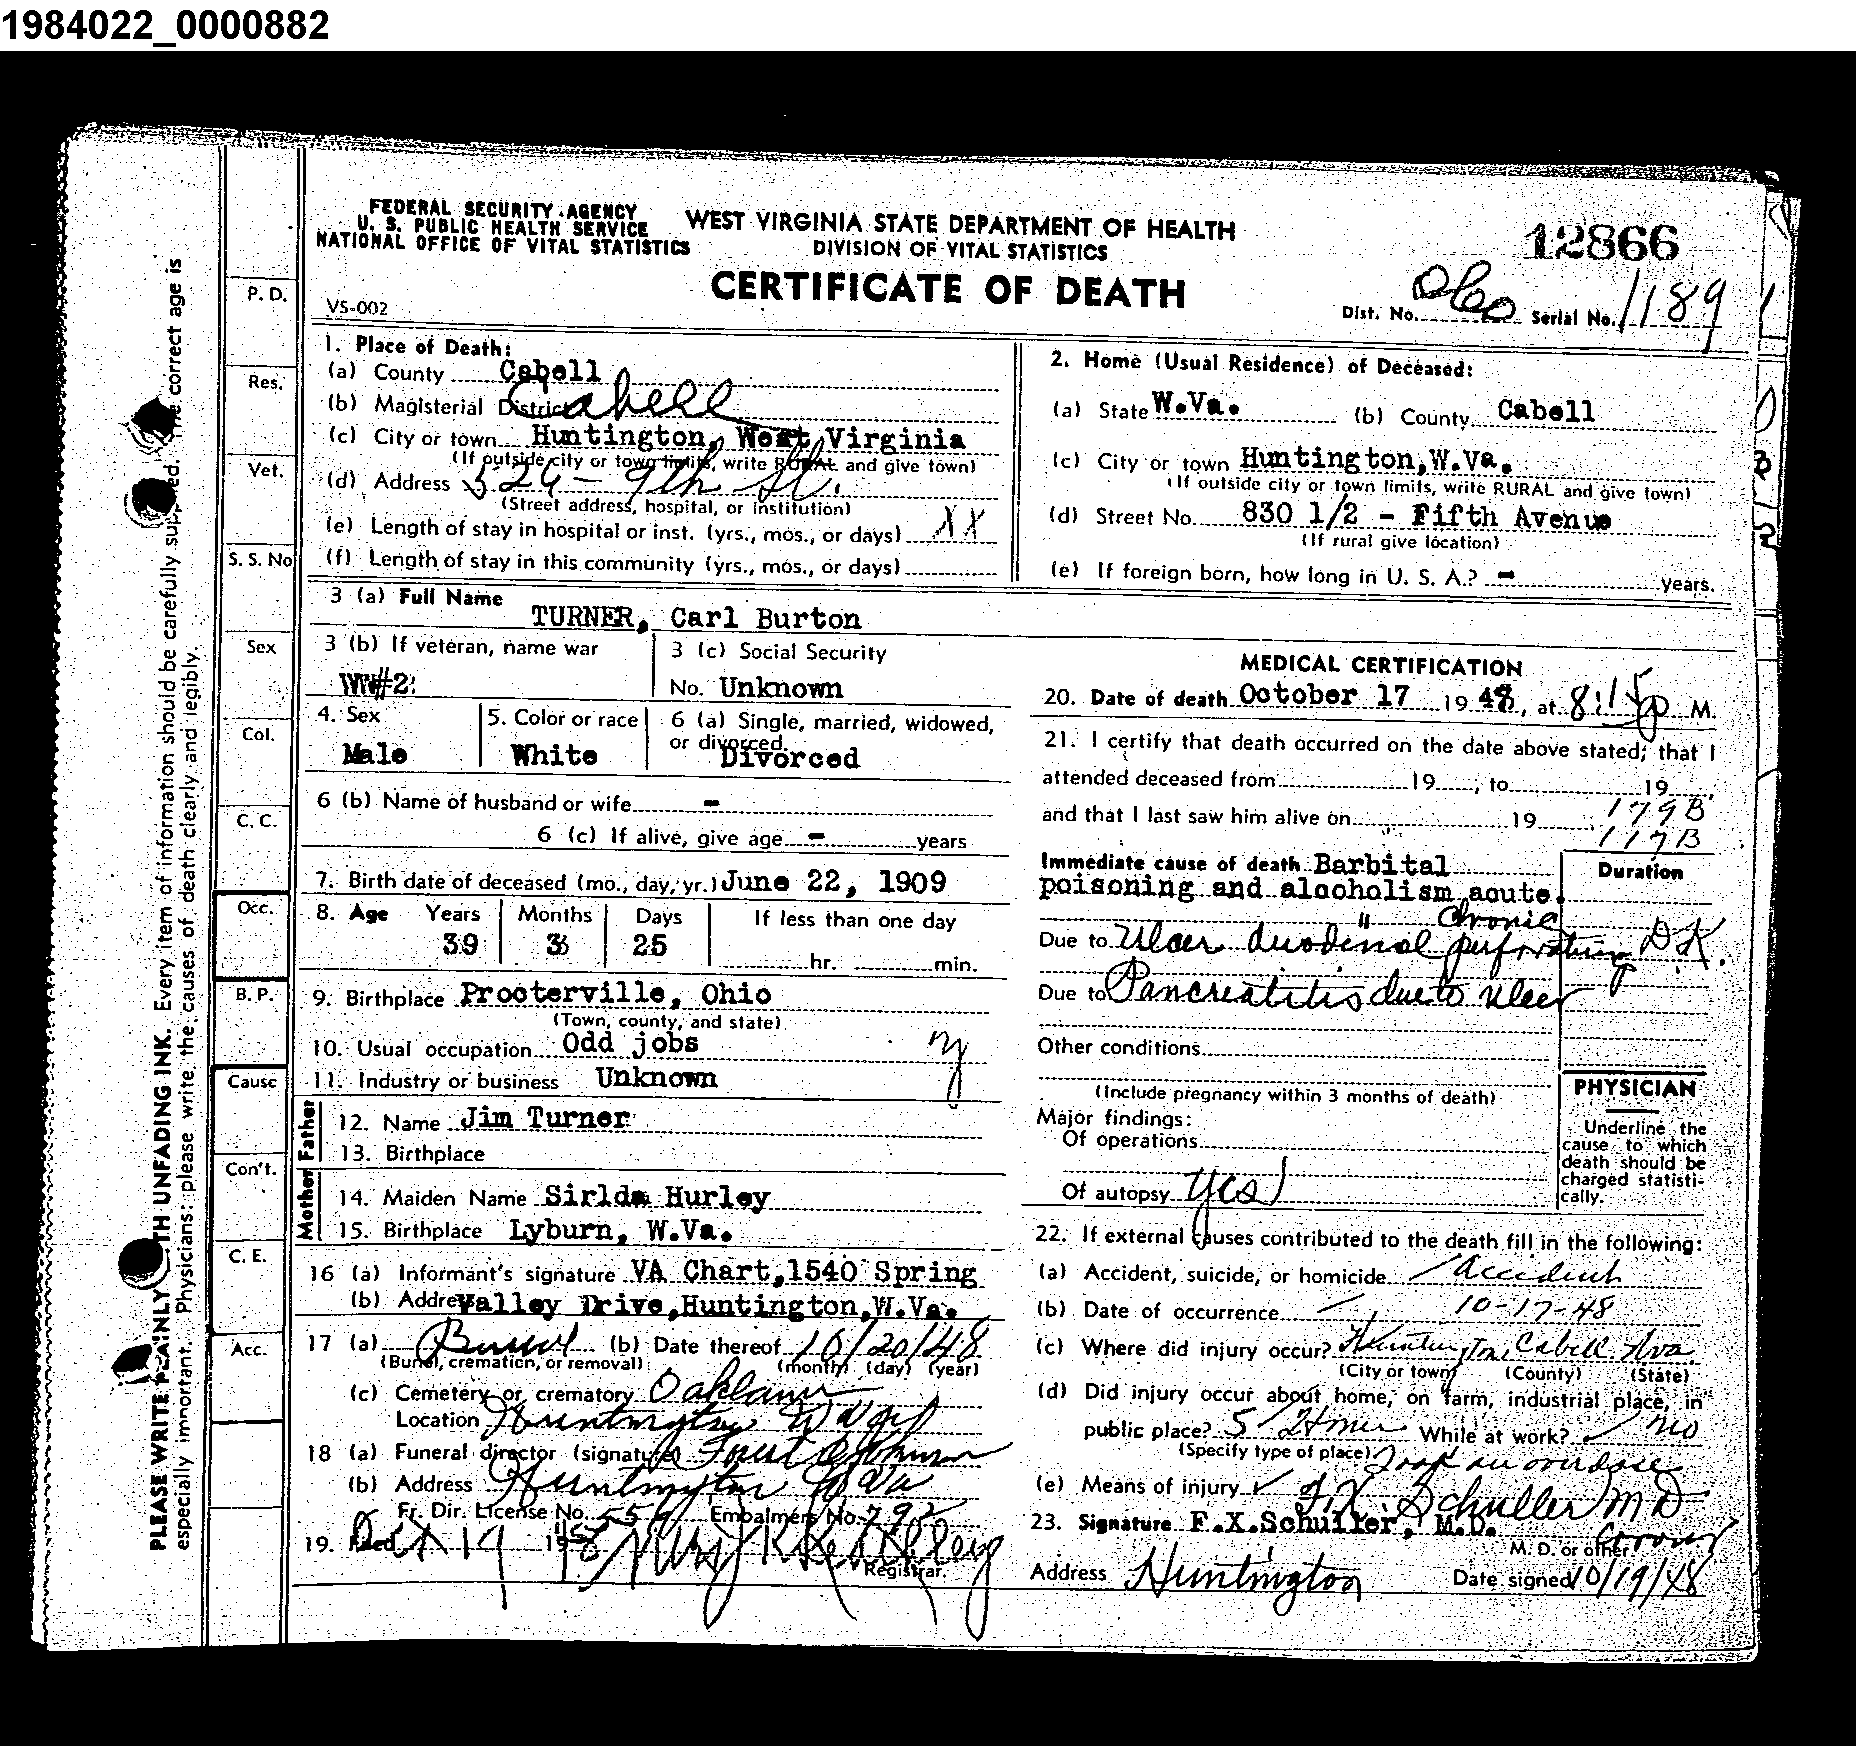 1984022_0000882
FEDERAL SECURITY AGENCY
U. S. PUBLIC HEALTH SERVICE
NATIONAL OFFICE OF VITAL STATISTICS
WEST VIRGINIA STATE DEPARTMENT OF HEALTH
DIVISION OF VITAL STATISTICS
CERTIFICATE OF DEATH
12866
VS-002
Dist. No. Serial No. 1189
1. Place of Death:
(a) County Cabell
(b) Magisterial District Cabell
(c) City or town Huntington, West Virginia
(If outside city or town limits, write RURAL and give town)
(d) Address 526 - 9th St.
(Street address, hospital, or institution)
(e) Length of stay in hospital or inst. (yrs., mos., or days) XX
(f) Length of stay in this community (yrs., mos., or days)
2. Home (Usual Residence) of Deceased:
(a) State W.Va. (b) County Cabell
(c) City or town Huntington,W.Va.
(If outside city or town limits, write RURAL and give town)
(d) Street No. 830 1/2 - Fifth Avenue
(If rural give location)
(e) If foreign born, how long in U. S. A.? - years.
3 (a) Full Name
TURNER, Carl Burton
3 (b) If veteran, name war
WW#2
3 (c) Social Security
No. Unknown
4. Sex
Male
5. Color or race
White
6 (a) Single, married, widowed,
or divorced.
Divorced
6 (b) Name of husband or wife -
6 (c) If alive, give age - years
7. Birth date of deceased (mo., day, yr.) June 22, 1909
8. Age Years Months Days If less than one day
39 3 25 hr. min.
9. Birthplace Procterville, Ohio
(Town, county, and state)
10. Usual occupation Odd jobs
11. Industry or business Unknown
Father
12. Name Jim Turner
13. Birthplace
Mother
14. Maiden Name Sirlda Hurley
15. Birthplace Lyburn, W.Va.
16 (a) Informant's signature VA Chart,1540 Spring
(b) Address Valley Drive,Huntington,W.Va.
17 (a) Burial (b) Date thereof 10/20/48
(Burial, cremation, or removal) (month) (day) (year)
(c) Cemetery or crematory
Location Huntington W Va
18 (a) Funeral director (signature) Johnson
(b) Address Huntington W Va
Fr. Dir. License No. 556 Embalmers No. 792
19. Filed Oct 19 1948
Registrar.
MEDICAL CERTIFICATION
20. Date of death October 17 1948, at 8:15 p M.
21. I certify that death occurred on the date above stated; that I
attended deceased from 19 , to 19
and that I last saw him alive on 19
179B
117B
Immediate cause of death Barbital
poisoning and alcoholism acute.
" Chronic
Duration
Due to Ulcer duodenal perforating D.K.
Due to Pancreatitis due to ulcer
Other conditions
(Include pregnancy within 3 months of death)
Major findings:
Of operations
Of autopsy yes
PHYSICIAN
Underline the
cause to which
death should be
charged statisti-
cally.
22. If external causes contributed to the death fill in the following:
(a) Accident, suicide, or homicide Accident
(b) Date of occurrence 10-17-48
(c) Where did injury occur? Huntington, Cabell Wva
(City or town) (County) (State)
(d) Did injury occur about home, on farm, industrial place, in
public place? Home While at work? no
(Specify type of place)
(e) Means of injury Took an overdose
F.X. Schuller MD
23. Signature F.X.Schuller, M.D.
Coroner
M. D. or other
Address Huntington Date signed 10/19/48
P. D.
Res.
Vet.
S. S. No
Sex
Col.
C. C.
Occ.
B. P.
Cause
Con't.
C. E.
Acc.
PLEASE WRITE PLAINLY WITH UNFADING INK. Every item of information should be carefully supplied. The correct age is
especially important. Physicians: please write the causes of death clearly and legibly.